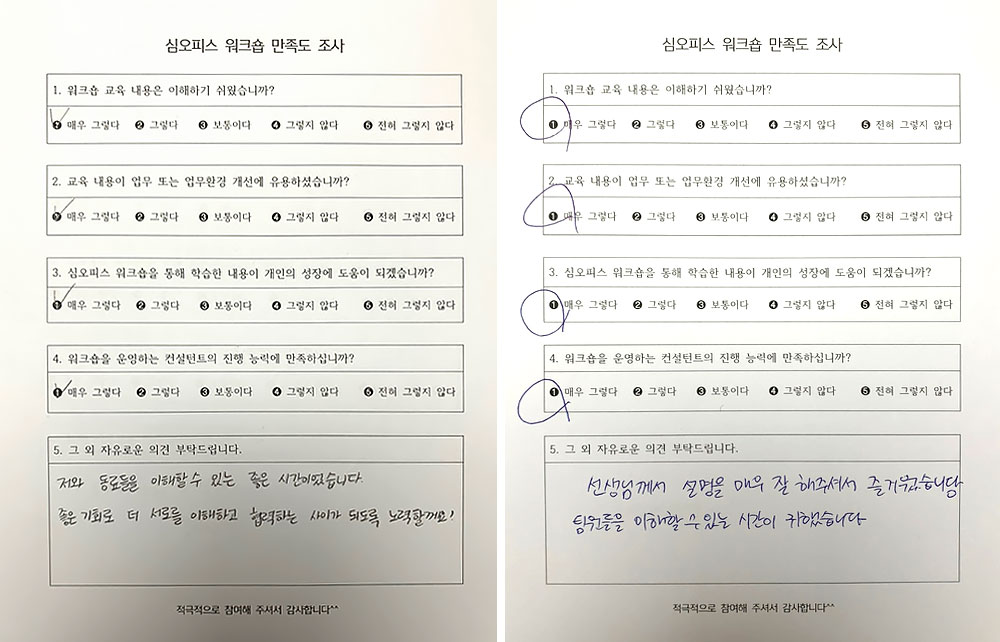 심오피스 워크숍 만족도 조사
1. 워크숍 교육 내용은 이해하기 쉬웠습니까?
❶ 매우 그렇다 ❷ 그렇다 ❸ 보통이다 ❹ 그렇지 않다 ❺ 전혀 그렇지 않다
2. 교육 내용이 업무 또는 업무환경 개선에 유용하셨습니까?
❶ 매우 그렇다 ❷ 그렇다 ❸ 보통이다 ❹ 그렇지 않다 ❺ 전혀 그렇지 않다
3. 심오피스 워크숍을 통해 학습한 내용이 개인의 성장에 도움이 되겠습니까?
❶ 매우 그렇다 ❷ 그렇다 ❸ 보통이다 ❹ 그렇지 않다 ❺ 전혀 그렇지 않다
4. 워크숍을 운영하는 컨설턴트의 진행 능력에 만족하십니까?
❶ 매우 그렇다 ❷ 그렇다 ❸ 보통이다 ❹ 그렇지 않다 ❺ 전혀 그렇지 않다
5. 그 외 자유로운 의견 부탁드립니다.
저와 동료들을 이해할 수 있는 좋은 시간이었습니다.
좋은 기회로 더 서로를 이해하고 협력하는 사이가 되도록 노력할께요!
적극적으로 참여해 주셔서 감사합니다^^
심오피스 워크숍 만족도 조사
1. 워크숍 교육 내용은 이해하기 쉬웠습니까?
❶ 매우 그렇다 ❷ 그렇다 ❸ 보통이다 ❹ 그렇지 않다 ❺ 전혀 그렇지 않다
2. 교육 내용이 업무 또는 업무환경 개선에 유용하셨습니까?
❶ 매우 그렇다 ❷ 그렇다 ❸ 보통이다 ❹ 그렇지 않다 ❺ 전혀 그렇지 않다
3. 심오피스 워크숍을 통해 학습한 내용이 개인의 성장에 도움이 되겠습니까?
❶ 매우 그렇다 ❷ 그렇다 ❸ 보통이다 ❹ 그렇지 않다 ❺ 전혀 그렇지 않다
4. 워크숍을 운영하는 컨설턴트의 진행 능력에 만족하십니까?
❶ 매우 그렇다 ❷ 그렇다 ❸ 보통이다 ❹ 그렇지 않다 ❺ 전혀 그렇지 않다
5. 그 외 자유로운 의견 부탁드립니다.
선생님께서 설명을 매우 잘 해주셔서 즐거웠습니당
팀원들을 이해할 수 있는 시간이 귀했습니다
적극적으로 참여해 주셔서 감사합니다^^